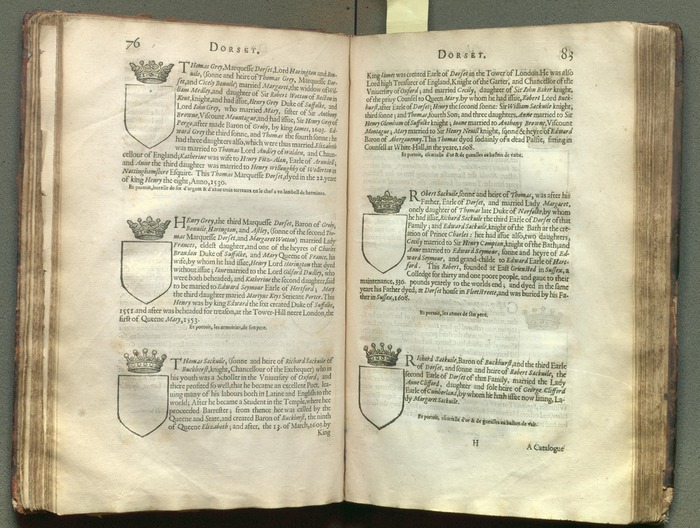 76
DORSET.
THomas Grey, Marquesse Dorset, Lord Harington and Bon-
uile, (sonne and heire of Thomas Grey, Marquesse Dor-
set, and Cicely Bonuile) married Margaret, the widdow of Wil-
liam Medley, and daughter of Sir Robert Wotton of Bocton in
Kent, knight, and had issue, Henry Grey Duke of Suffolke, and
Lord Iohn Grey, who married Mary, sister of Sir Anthony
Browne, Viscount Mountague, and had issue, Sir Henry Grey of
Pergo, after made Baron of Groby, by king Iames, 1603. Ed-
ward Grey the third sonne, and Thomas the fourth sonne: he
had three daughters also, which were thus married, Elizabeth
was married to Thomas Lord Audley of Walden, and Chaun-
cellour of England; Katherine was wife to Henry Fitz-Alan, Earle of Arundell,
and Anne the third daughter was married to Henry Willoughby of Wollerton in
Nottinghamshire Esquire. This Thomas Marquesse Dorset, dyed in the 22. yeare
of king Henry the eight, Anno, 1530.
HEnry Grey, the third Marquesse Dorset, Baron of Grobi,
Bonuile, Harington, and Astley, (sonne of the second Tho-
mas Marquesse Dorset, and Margaret Wotton) married Lady
Frances, eldest daughter, and one of the heyres of Charles
Brandon Duke of Suffolke, and Mary Queene of France, his
wife, by whom he had issue, Henry Lord Harington that dyed
without issue; Iane married to the Lord Gilford Dudley, who
were both beheaded; and Katherine the second daughter, said
to be maried to Edward Seymour Earle of Hertford; Mary
the third daughter maried Martyn Keys Serieant Porter. This
Henry was by king Edward the sixt created Duke of Suffolke,
1551. and after was beheaded for treason, at the Tower-Hill neere London, the
first of Queene Mary, 1553.
Et portoit, les armoiries, de son pere.
THomas Sackuile, (sonne and heire of Richard Sackuile of
Buckhurst, knight, Chancellour of the Exchequer) who in
his youth was a Scholler in the Vniuersity of Oxford, and
there profited so well, that he became an excellent Poet, lea-
uing many of his labours both in Latine and English to the
world; After he became a Student in the Temple, where hee
proceeded Barrester; from thence her was called by the
Queene and State, and created Baron of Buckhurst, the ninth
of Queene Elizabeth; and after, the 13. of March, 1603. by
King
DORSET.
83
King Iames was created Earle of Dorset in the Tower of London. He was also
Lord high Treasurer of England, Knight of the Garter, and Chancellour of the
Vniuersity of Oxford; and married Cecily, daughter of Sir Iohn Baker knight,
of the priuy Counsel to Queen Mary, by whom he had issue, Robert Lord Buck-
hurst, after Earle of Dorset; Henry the second sonne: Sir William Sackuile knight,
third sonne; and Thomas, fourth Sonne, and three daughters, Anne married to Sir
Henry Glemham of Suffolke knight; Ioane married to Anthony Browne, Viscount
Montague; Mary married to Sir Henry Neuill knight, sonne & heyre of Edward
Baron of Abergauenny. This Thomas dyed sodainly of a dead Palsie, sitting in
Counsell at White-Hall, in the yeare, 1608.
RObert Sackuile, sonne and heire of Thomas, was after his
Father, Earle of Dorset, and married Lady Margaret,
onely daughter of Thomas late Duke of Norfolke, by whom
he had issue, Richard Sackuile the third Earle of Dorset of that
Family; and Edward Sackuile, knight of the Bath at the cre-
ation of Prince Charles: hee had issue also, two daughters,
Cecily married to Sir Henry Compton, knight of the Bath; and
Anne married to Edward Seymour, sonne and heyre of Ed-
ward Seymour, and grand-childe to Edward Earle of Hert-
ford. This Robert, founded at East Grensted in Sussex, a
Colledge for thirty and one poore people, and gaue to their
maintenance, 330. pounds yearely to the worlds end; and dyed in the same
yeare his Father dyed, at Dorset house in Fleetstreete, and was buried by his Fa-
ther in Sussex, 1608.
Et portoit, les armes de son pere.
RIchard Sackuile, Baron of Buckhurst, and the third Earle
of Dorset, and sonne and heire of Robert Sackuile, the
second Earle of Dorset of that Family, married the Lady
Anne Clifford, daughter and sole heire of George Clifford
Earle of Cumberland, by whom he hath issue now liuing, La-
dy Margaret Sackuile.
H
A Catalogue